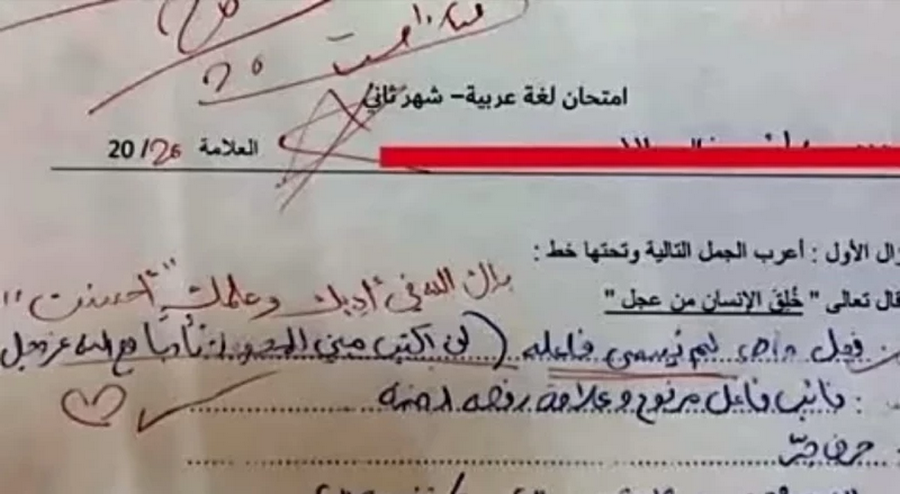 أحسنت
20
امتحان لغة عربية- شهر ثاني
العلامة 20/20
ال الأول : أعرب الجمل التالية وتحتها خط :
قال تعالى " خُلِقَ الإنسان من عجل "
بارك الله في أدبك وعلمك "أحسنت"
فعل ماض لم يسمى فاعله (لن اكتب مبني للمجهول تأدبا مع الله عز وجل
: نائب فاعل مرفوع وعلامة رفعه الضمة
: حرف جرّ